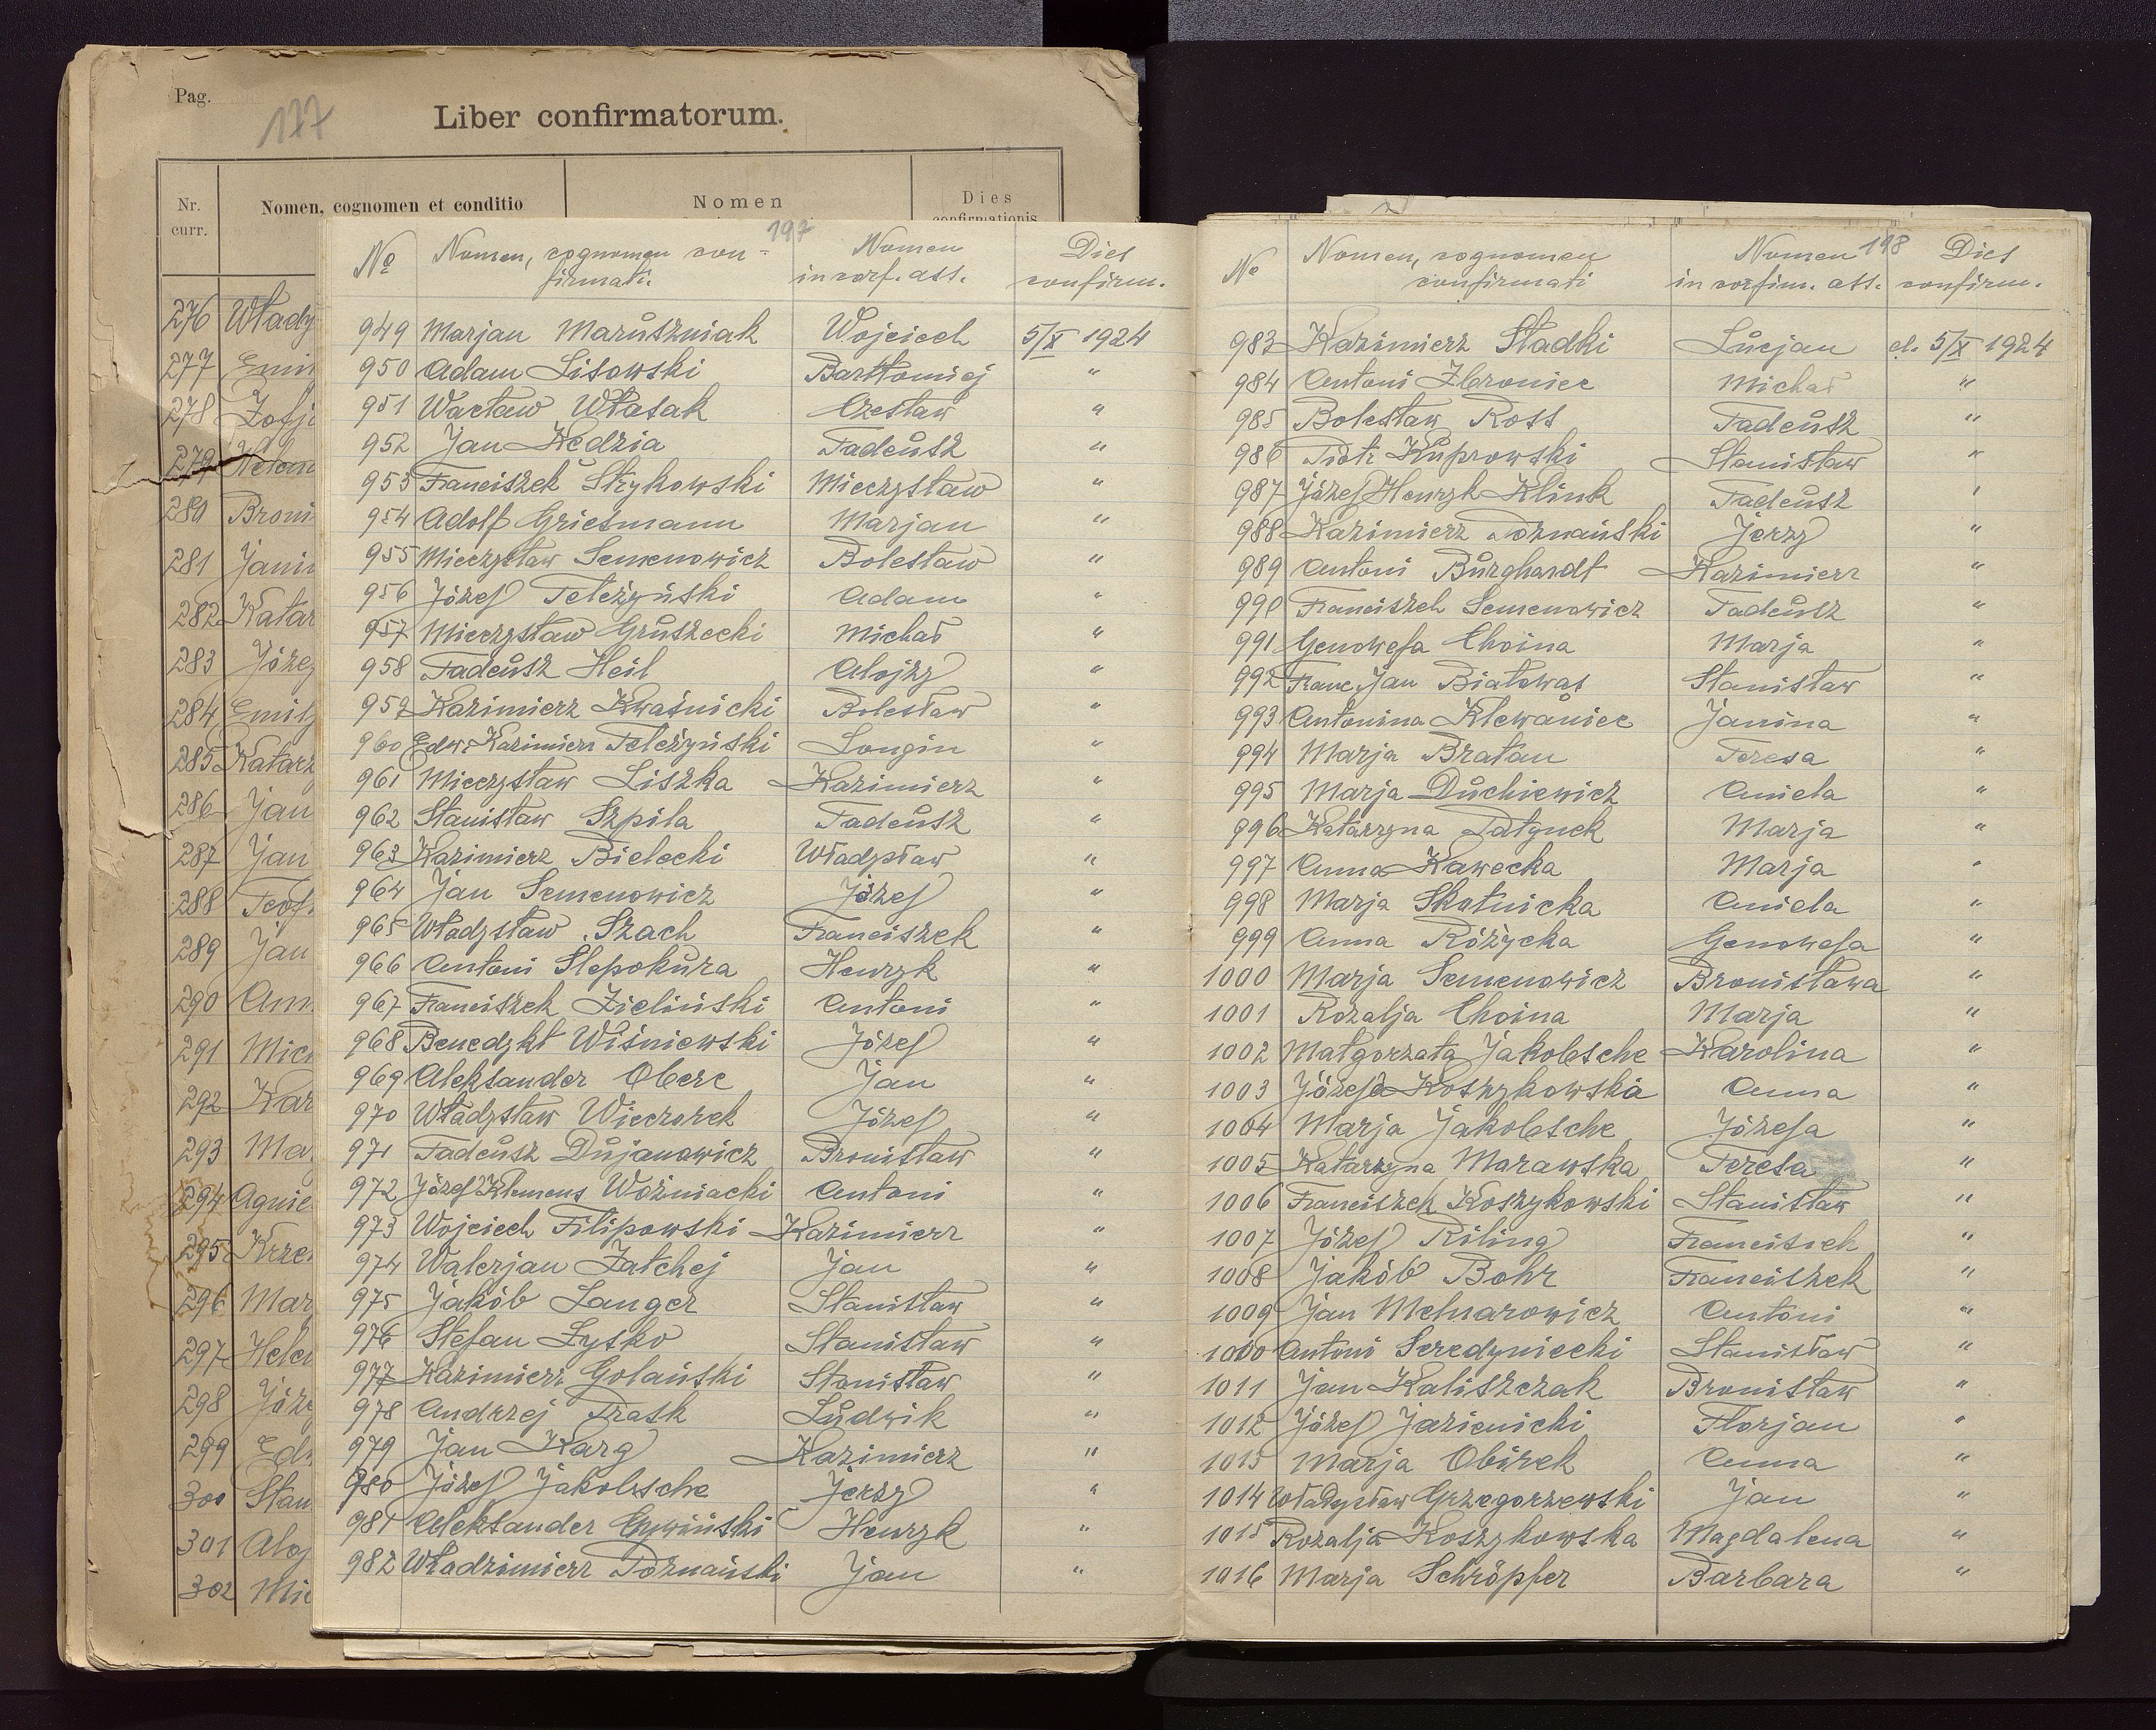 Pag.
177
Liber confirmatorum.
Nr.
curr.
Nomen, cognomen et conditio
Nomen
Dies
confirmationis
276 Włady
277 Emil
278 Zofj
279 Helen
280 Broni
281 Janin
282 Katar
283 Józef
284 Emily
285 Katarz
286 Jan
287 Jan
288 Teof.
289 Jan
290 Ann
291 Mich
292 Kar
293 Mar
294 Agnie
295 Krze
296 Mar
297 Helen
298 Józe
299 Edw
300 Stan
301 Aloj
302 Mie
197
No Nomen, cognomen con- Nomen Dies
firmati. in conf. ass. confirm.
949 Marjan Maruszniak Wojciech 5/X 1924
950 Adam Lisowski Bartłomiej "
951 Wacław Własak Czesław "
952 Jan Kędzia Tadeusz "
953 Franciszek Strykowski Mieczysław "
954 Adolf Griesmann Marjan "
955 Mieczysław Semenowicz Bolesław "
956 Józef Teleżyński Adam "
957 Mieczysław Gruszecki Michał "
958 Tadeusz Heil Alojzy "
959 Kazimierz Kwaśnicki Bolesław "
960 Edw. Kazimierz Teleżyński Longin "
961 Mieczysław Liszka Kazimierz "
962 Stanisław Szpila Tadeusz "
963 Kazimierz Bielecki Władysław "
964 Jan Semenowicz Józef "
965 Władysław Szach Franciszek "
966 Antoni Ślepokura Henryk "
967 Franciszek Zieliński Antoni "
968 Benedykt Wiśniewski Józef "
969 Aleksander Oberc Jan "
970 Władysław Wieczorek Józef "
971 Tadeusz Dujanowicz Bronisław "
972 Józef Klemens Woźniacki Antoni "
973 Wojciech Filipowski Kazimierz "
974 Walerjan Zatchej Jan "
975 Jakób Langer Stanisław "
976 Stefan Łysko Stanisław "
977 Kazimierz Golański Stanisław "
978 Andrzej Trask Ludwik "
979 Jan Karg Kazimierz "
980 Józef Jakobsche Jerzy "
981 Aleksander Henryk "
982 Władzimierz Poznański Jan "
198
No Nomen, cognomen Nomen Dies
confirmati in confirm. ass. confirm.
983 Kazimierz Sładki Lucjan d. 5/X 1924
984 Antoni Zbroniec Michał "
985 Bolesław Ross Tadeusz "
986 Piotr Kuprowski Stanisław "
987 Józef Henryk Klink Tadeusz "
988 Kazimierz Poznański Jerzy "
989 Antoni Burghardt Kazimierz "
990 Franciszek Semenowicz Tadeusz "
991 Genowefa Choina Marja "
992 Franc. Jan Białowąs Stanisław "
993 Antonina Klewaniec Janina "
994 Marja Bratau Teresa "
995 Marja Duchiewicz Aniela "
996 Katarzyna Patynek Marja "
997 Anna Kawecka Marja "
998 Marja Skotnicka Aniela "
999 Anna Różycka Genowefa "
1000 Marja Semenowicz Bronisława "
1001 Rozalja Choina Marja "
1002 Małgorzata Jakobsche Karolina "
1003 Józefa Koszykowska Anna "
1004 Marja Jakobsche Józefa "
1005 Katarzyna Marawska Teresa "
1006 Franciszek Koszykowski Stanisław "
1007 Józef Riling Franciszek "
1008 Jakób Bohr Franciszek "
1009 Jan Melnarowicz Antoni "
1010 Antoni Seredyniecki Stanisław "
1011 Jan Kaliszczak Bronisław "
1012 Józef Jazienicki Florjan "
1013 Marja Obirek Anna "
1014 Władysław Grzegorzewski Jan "
1015 Rozalja Koszykowska Magdalena "
1016 Marja Schröpfer Barbara "